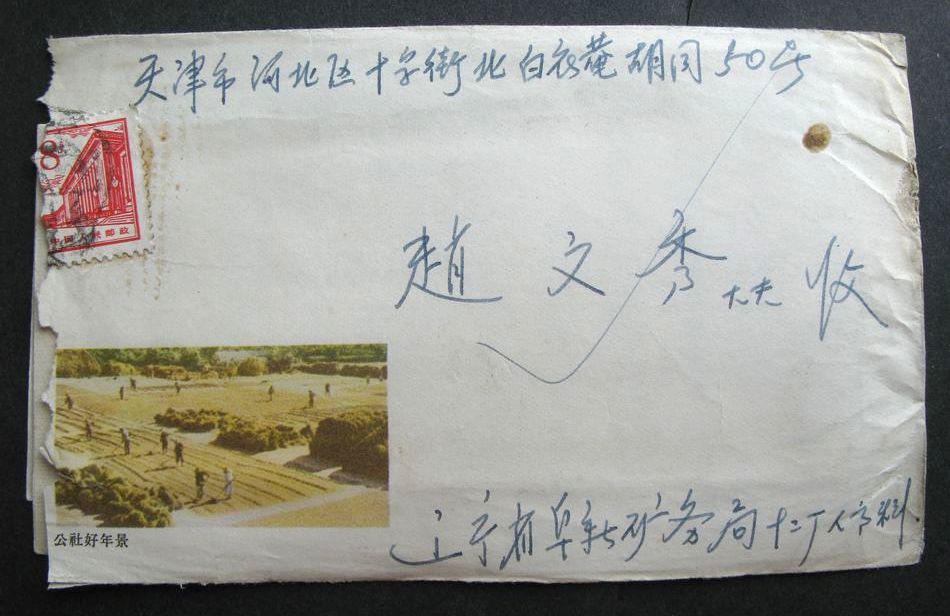 天津市河北区十字街北白衣菴胡同50号
8
中国人民邮政
赵文秀大夫收
公社好年景
辽宁省阜新矿务局十二厂